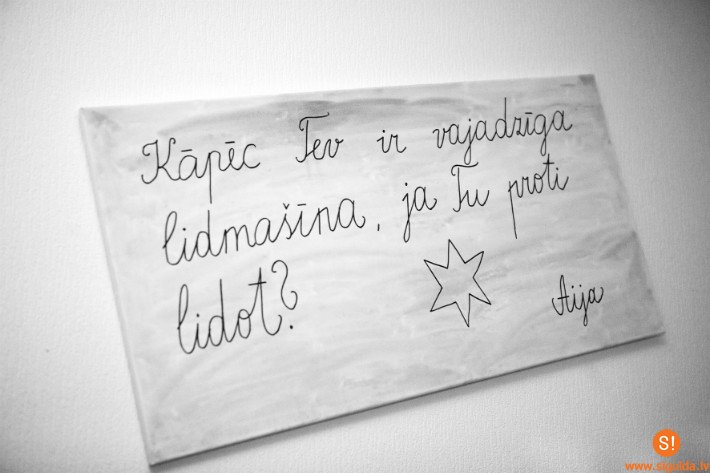 Kāpēc Tev ir vajadzīga
lidmašīna, ja Tu proti
lidot?
Aija
S!
www.sigulda.lv